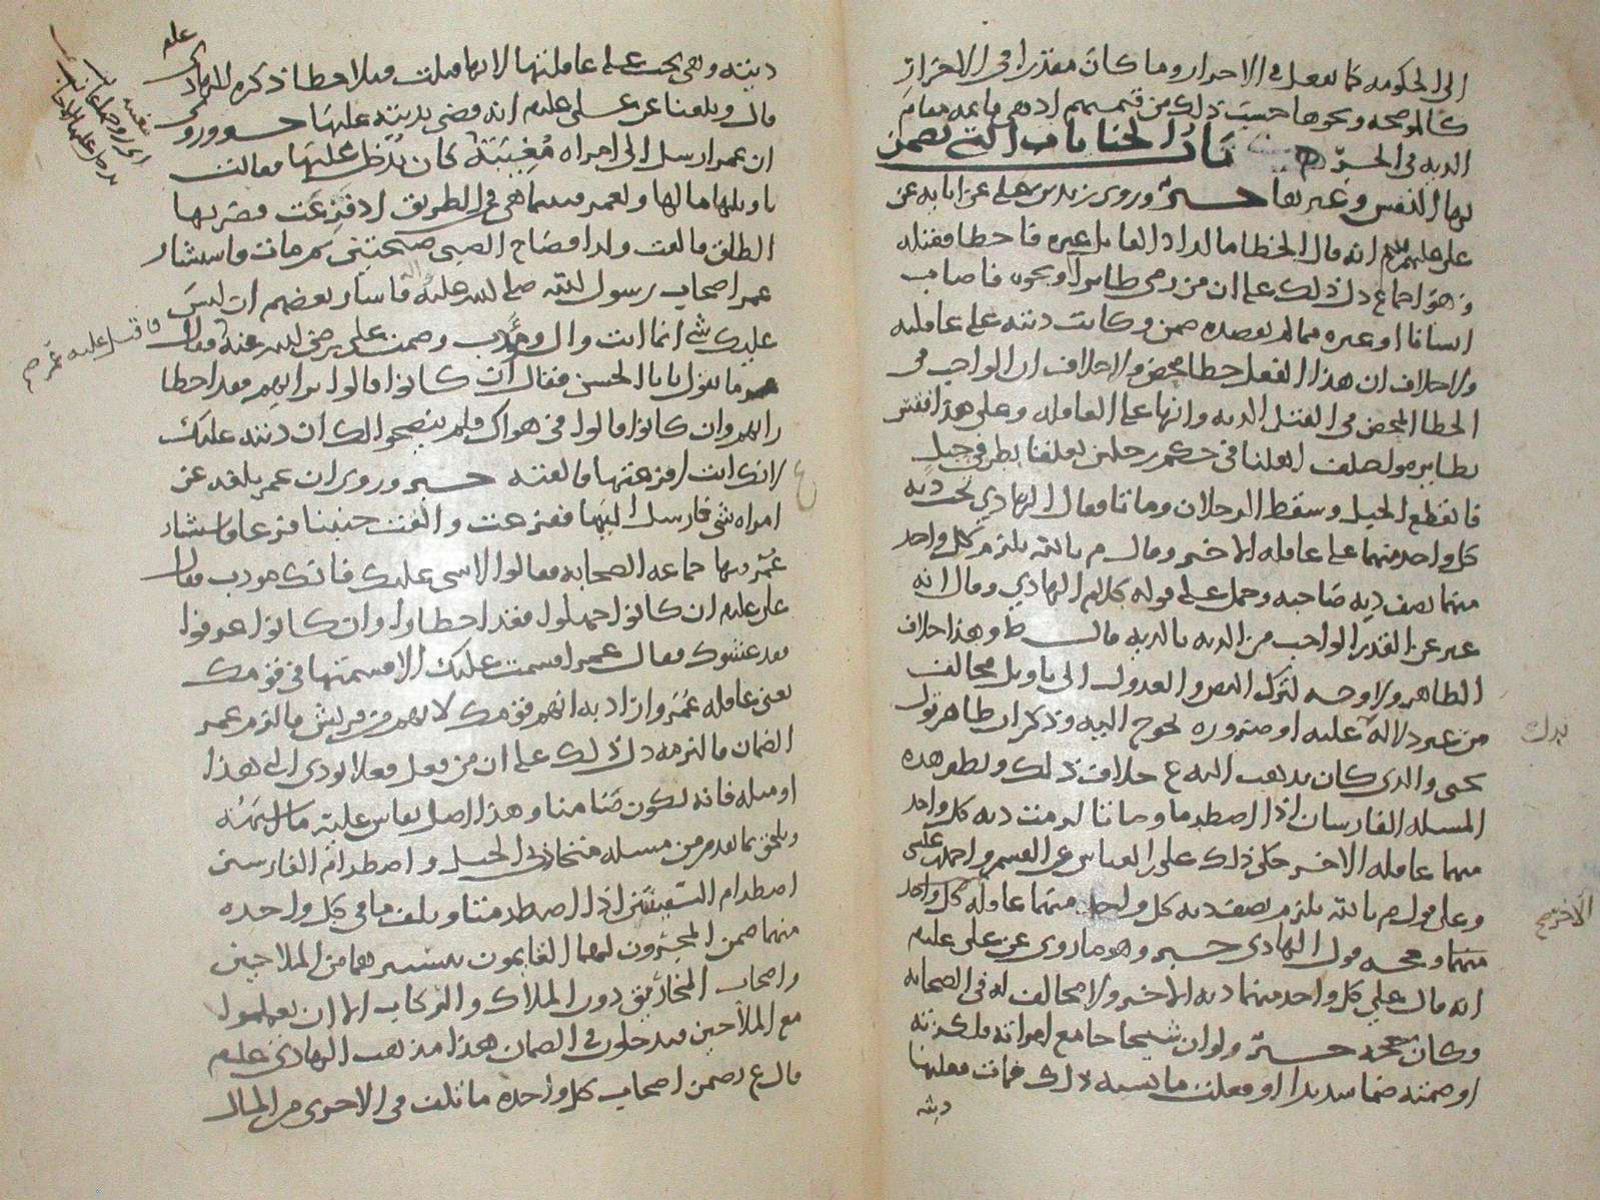 الى الحكومه كما نفعل في الاحرار وما كان مقدرا في الاحرار
كالموضحه ونحوها حسبت ذلك من قيمتهم اذ هي قايمه مقام
الديه في الحر باب الجنايات التي تضمن
بها النفس وغيرها خبر وروى زيد بن علي عن ابايه عن
علي عليهم انه قال الخطا ما اراد القاتل غيره فاخطا فقتله
وهو اجماع دل ذلك على ان من رمى طايرا ونحوه فاصاب
انسانا او غيره مما لم يقصده ضمن وكانت ديته على عاقلته
ولا خلاف ان هذا الفعل خطا محض ولا خلاف ان الواجب في
الخطا المحض في القتل الديه وانها على العاقله وعلى هذا
في حكم رجلين تعلقا بطرفي حبل
فانقطع الحبل وسقط الرجلان وماتا فقال الهادي تجب ديه
كل واحد منهما على عاقله الاخر وقال م بالله يلزم كل واحد
منهما نصف ديه صاحبه وحمل على قوله كلام الهادي وقال انه
عبر عن القدر الواجب من الديه بالديه قال ط وهذا خلاف
الظاهر ولا وجه لترك النص والعدول الى تاويل مخالف
من غير دلاله عليه او ضروره تحوج اليه وذكر ان ظاهر قول
يحيى والذي كان يذهب اليه ع خلاف ذلك ونظير هذه
المسله الفارسان اذا اصطدما وماتا لزمت ديه كل واحد
منهما عاقله الاخر حكى ذلك على بن العباس عن القسم واحمد بن عيسى
وعلى قول م بالله يلزم نصف ديه كل واحد منهما عاقله كل واحد
منهما وحجه قول الهادي خبر وهو ما روي عن علي عليلم
انه قال على كل واحد منهما ديه الاخر ولا مخالف له في الصحابه
وكان حجه خبر ولو ان شيخا جامع امراته فكزته
او ضمته ضما شديدا او فعلت ما يشبه ذلك فمات فعليها
ديته
بدل
الاخر صح
ديته وهي تجب على عاقلتها لانها قتلت قتلا خطا ذكره الهادي
علم
قال وبلغنا عن علي عليلم انه قضى بديته عليها خبر وروي
ان عمر ارسل الى امراه مغيبة كان يدخل عليها فقالت
يا ويلها مالها ولعمر فبينما هي في الطريق اذ فزعت فضربها
الطلق فالقت ولدا فصاح الصبي صيحتين ثم مات فاستشار
عمر اصحاب رسول الله صلى الله عليه فاشار بعضهم ان ليس
عليك شي انما انت وال ومودب وصمت علي رضي الله عنه فقال
فاقبل عليه عمر صح
عمر ما تقول يا با الحسن فقال ان كانوا قالوا برايهم فقد اخطا
رايهم وان كانوا قالوا في هواك فلم ينصحوا لك ان ديته عليك
لانك انت افزعتها فالقته خبر وروي ان عمر بلغه عن
امراه شي فارسل اليها ففزعت والقت جنينا فزعا فاستشار
عمر فيها جماعه الصحابه فقالوا لا شي عليك فانك مودب فقال
علي عليلم ان كانوا اجتهدوا فقد اخطاوا وان كانوا عرفوا
فقد غشوك فقال عمر اقسمت عليك الا قسمتها في قومك
يعني عاقله عمر واراد به انهم قومك لانهم من قريش فالزم عمر
الضمان فالتزمه دل ذلك على ان من فعل فعلا يودي الى هذا
او مثله فانه يكون ضامنا وهذا الاصل يقاس عليه ما اشبهه
ويلحق بما تقدم من مسله متجاذبي الحبل واصطدام الفارسين
اصطدام السفينتين اذا اصطدمتا وتلف ما في كل واحده
منهما ضمن المجرون لهما القايمون بتسييرهما من الملاحين
واصحاب المخاديق دون الملاك والركاب الا ان يعملوا
مع الملاحين فيدخلون في الضمان هذا مذهب الهادي عليلم
قال ع يضمن اصحاب كل واحده ما تلف في الاخرى من المال